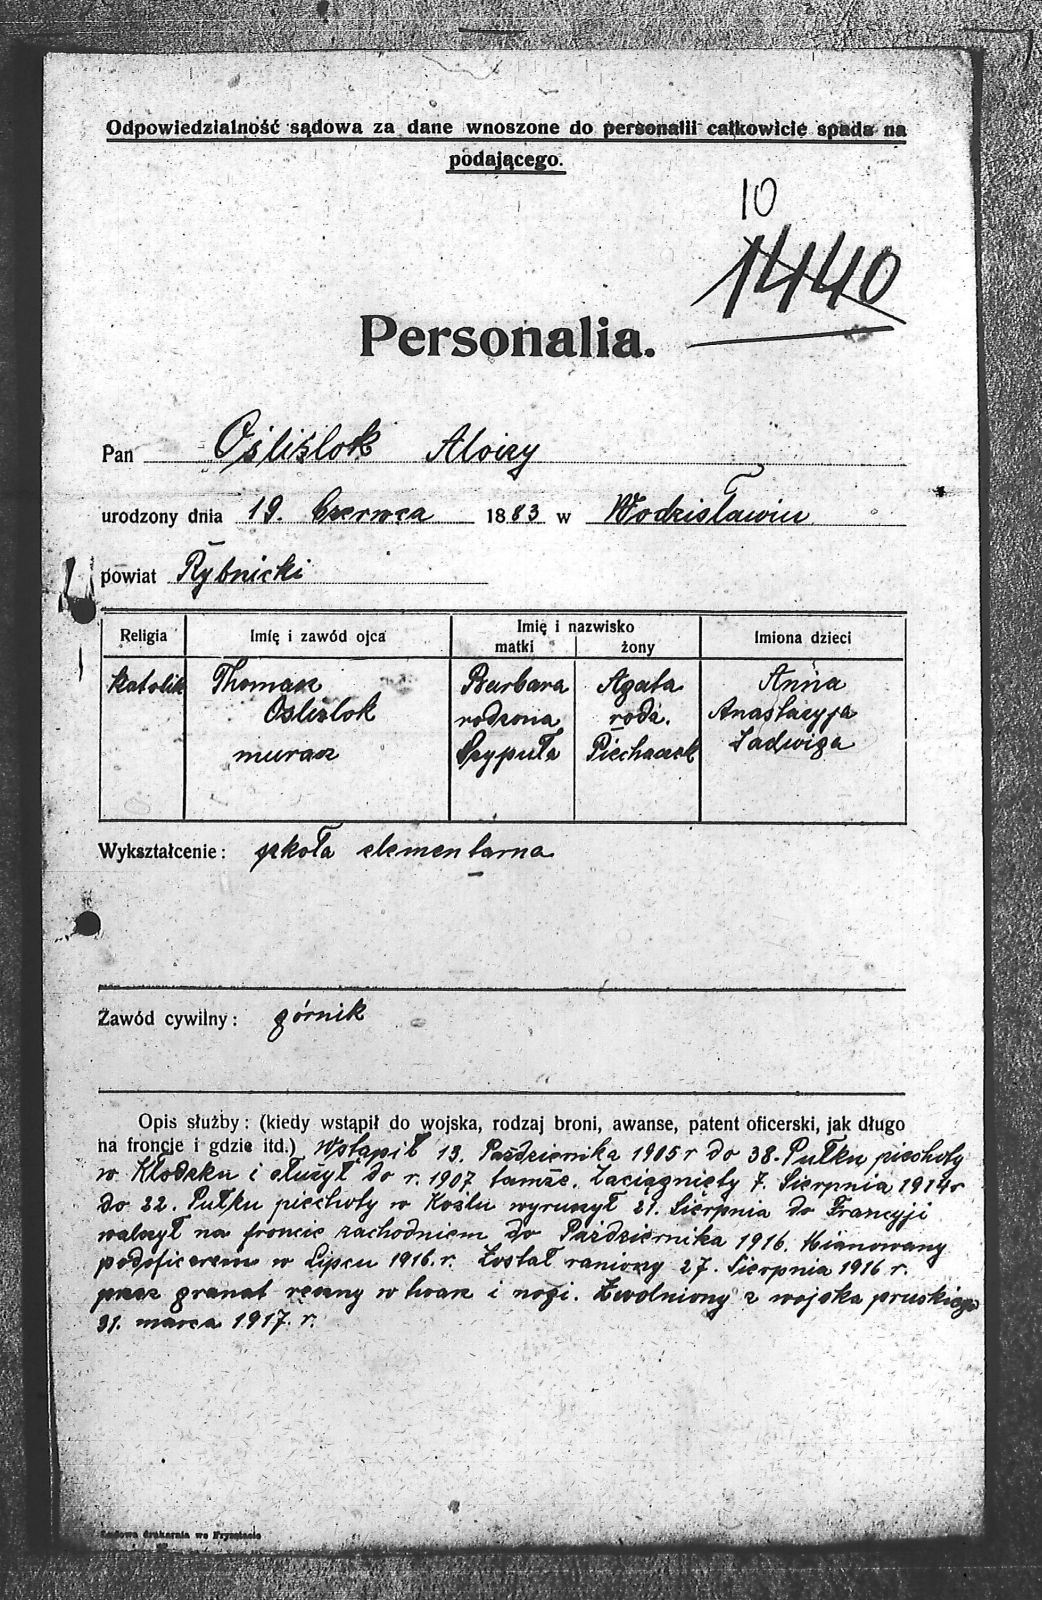 Odpowiedzialność sądowa za dane wnoszone do personalii całkowicie spada na
podającego.
10
1440
Personalia.
Pan Ośliźlok Aloizy
urodzony dnia 19. Czerwca 1883 w Wodzisławiu
powiat Rybnicki
Religia
Imię i zawód ojca
Imię i nazwisko
matki
żony
Imiona dzieci
katolik
Thomasz
Oslizlok
murarz
Barbara
rodzona
Szypuła
Agata
rodz.
Piechaczek
Anna
Anastazyja
Jadwiga
Wykształcenie: szkoła elementarna
Zawód cywilny: górnik
Opis służby: (kiedy wstąpił do wojska, rodzaj broni, awanse, patent oficerski, jak długo
na froncie i gdzie itd.) Wstąpił 13. Października 1905 r do 38. Pułku piechoty
w Kłodzku i służył do r. 1907 tamże. Zaciągnięty 7. Sierpnia 1914 r
do 22. Pułku piechoty w Koźlu wyruszył 21. Sierpnia do Francyji
walczył na froncie zachodniem do Października 1916. Mianowany
podoficerem w Lipcu 1916. r. Został raniony 27. Sierpnia 1916 r.
przez granat ręczny w twarz i nogi. Zwolniony z wojska pruskiego
31. marca 1917. r.
Ludowa drukarnia we Frysztacie